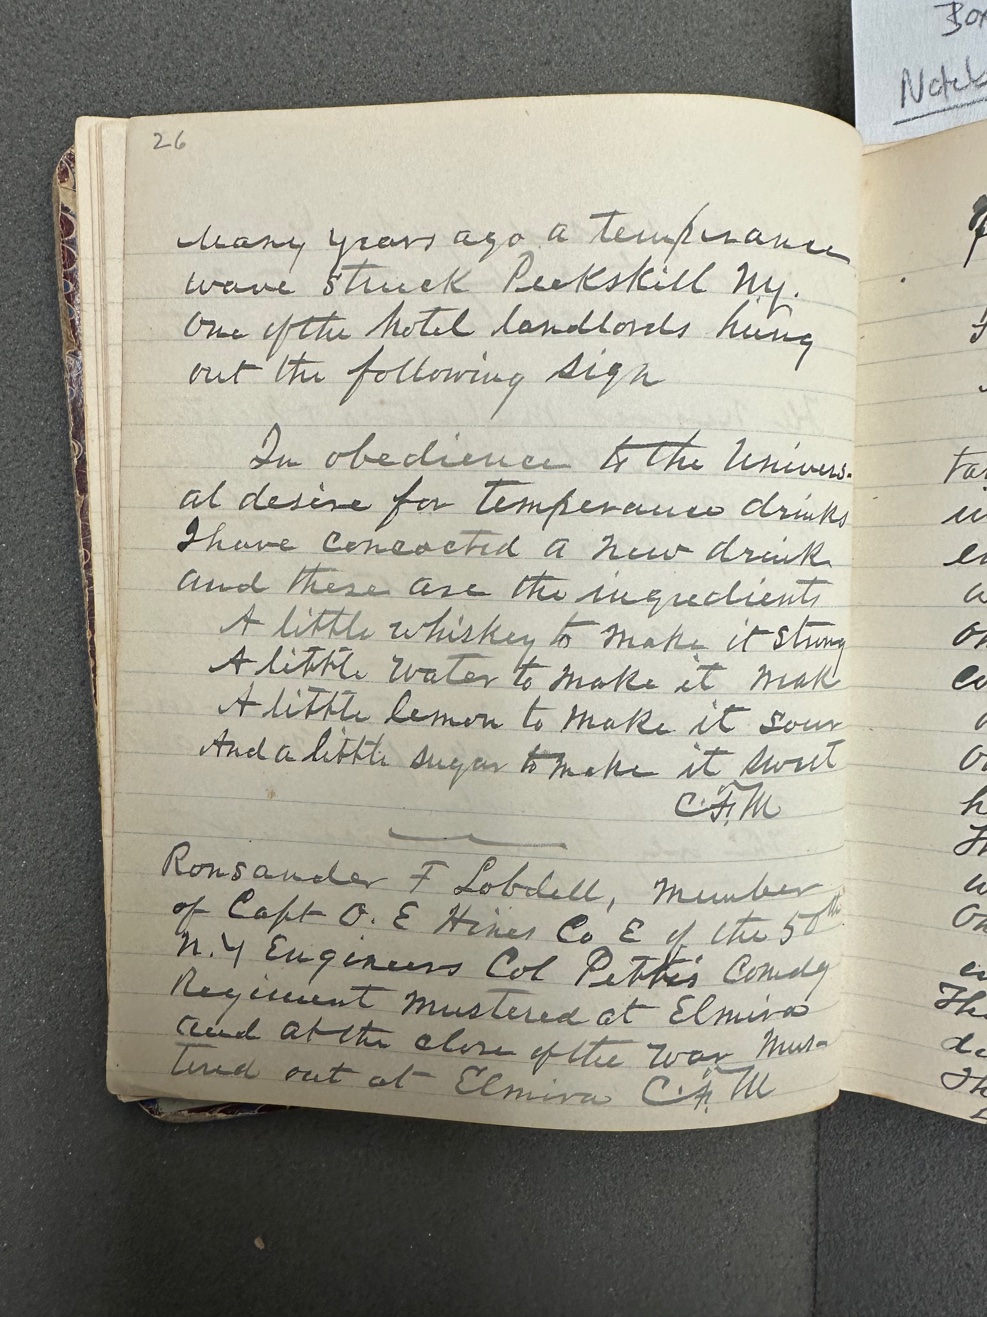 26
Many years ago a temperance
wave struck Peekskill N.Y.
One of the hotel landlords hung
out the following sign
In obedience to the Univers-
al desire for temperance drinks
I have concocted a new drink
and these are the ingredients
A little whiskey to make it strong
A little water to make it mak
A little lemon to make it sour
And a little sugar to make it sweet
C.F.M
Ronsander F Lobdell, Member
of Capt O. E Hines Co E of the 50th
N.Y Engineers Col Pettis Comdg
Regiment mustered at Elmira
and at the close of the war Mus-
tered out at Elmira C.F.M